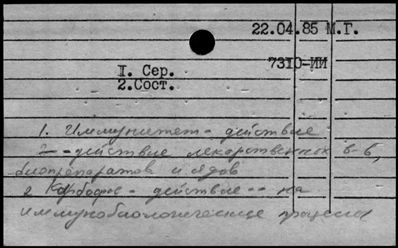 22.04.85 М.Г.
7310-ИИ
I. Сер.
2.Сост.
1. Иммунитет - действие
2 - - действие лекарственных в-в,
биопрепаратов и ядов
2 Карбофос - действие -- на
иммунобиологические процессы